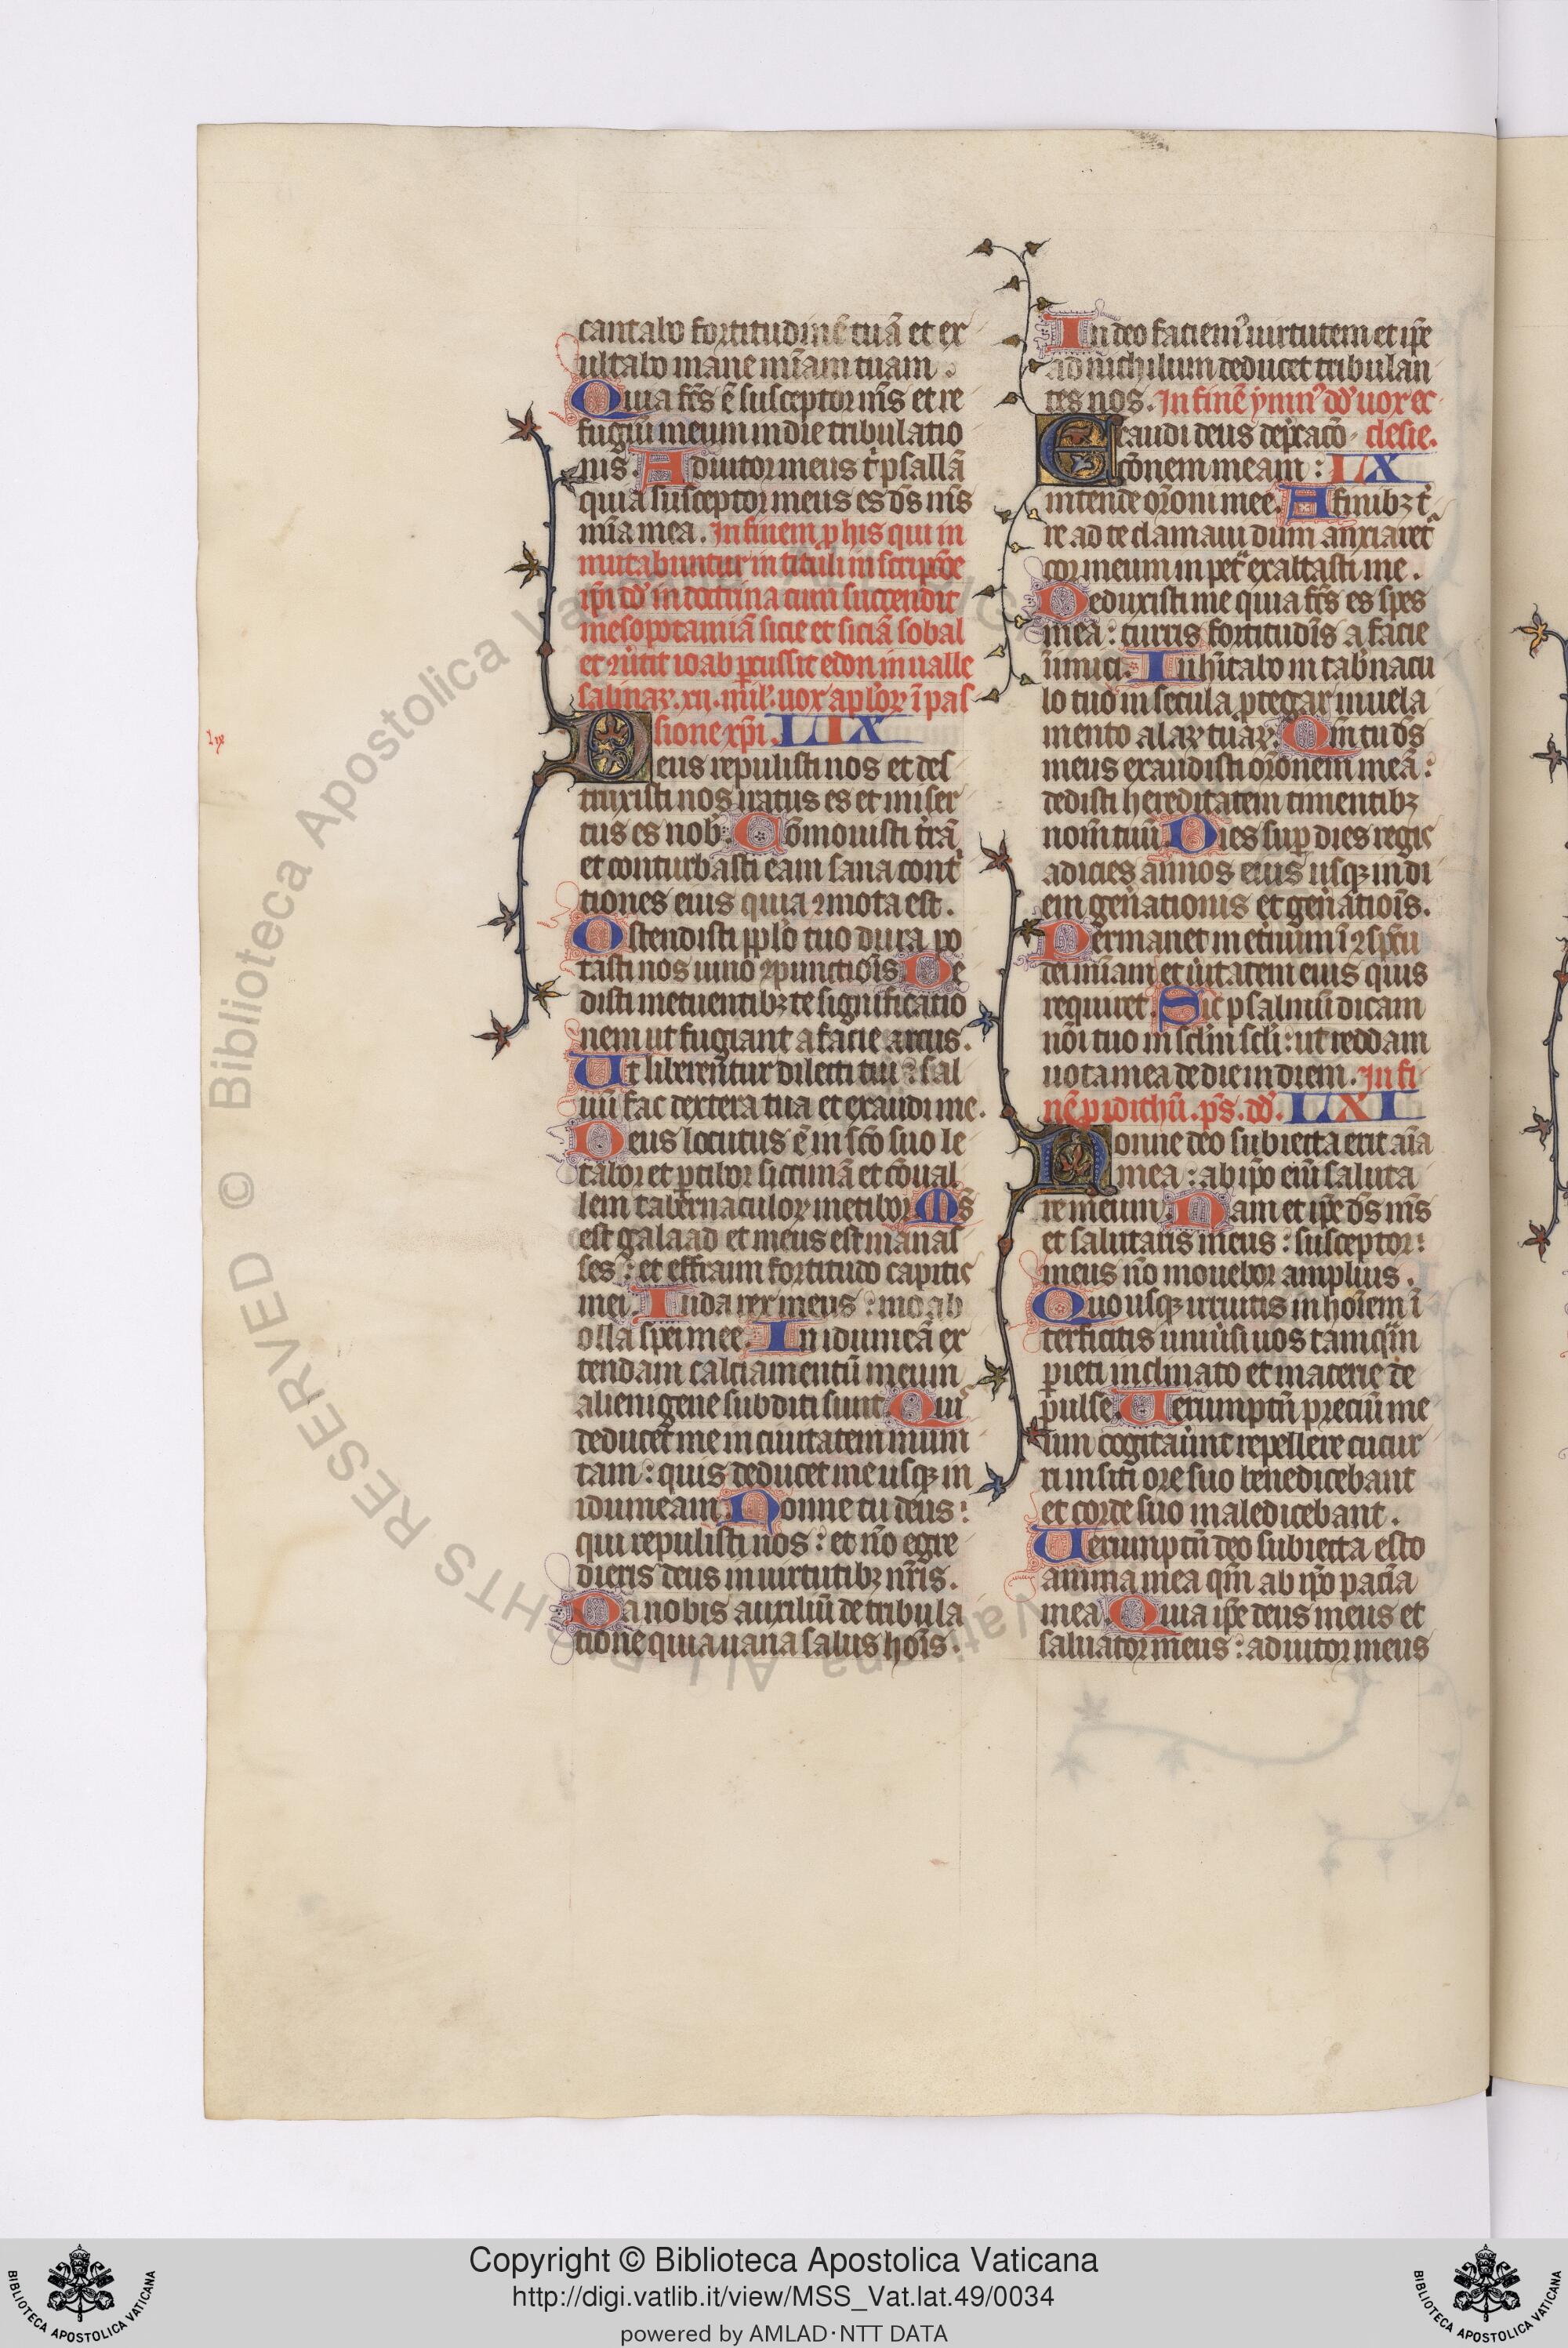 cantabo fortitudinē tuā et ex
ultabo mane mīam tuam.
Quia fc̄s ē susceptor m̄s et re
fugiū meum in die tribulatio
nis. Adiutor meus t̄ psallā
quia susceptor meus es d̄s m̄s
mīa mea. In finem p his qui in
mutabuntur in tituli inscriptōe
ip̄i dd̄ in doctrina cum succendit
mesopotamiā sicie et siciā sobal
et ꝯūtit ioab ꝑcussit edon in ualle
salinaꝝ. xii. mil'. uox aplōꝝ ī pas
sione xp̄i. LIX
Deus repulisti nos et des
truxisti nos iratus es et miser
tus es nob̄. Cōmouisti t̄rā
et conturbasti eam sana cont̄
tiones eius quia ꝯmota est.
Ostendisti pplō tuo dura po
tasti nos uino ꝯpunctiōis. De
disti metuentibꝫ te significatio
nem ut fugiant a facie arcus.
Ut liberentur dilecti tui: sal
uū fac dextera tua et exaudi me.
Deus locutus ē in sc̄o suo le
tabor et ꝑtibor siccimā et cōual
lem tabernaculoꝝ metibor. M̄s
est galaad et meus est manas
ses: et effraim fortitudo capitis
mei. Iuda rex meus: moab
olla spei mee. In idumeā ex
tendam calciamentū meum
alienigene subditi sunt. Quis
deducet me in ciuitatem muni
tam: quis deducet me usqꝫ in
idumeam. Nonne tu deus:
qui repulisti nos: et nō egre
dieris deus in uirtutibꝫ nr̄is.
Da nobis auxiliū de tribula
tione quia uana salus hoīs.
In deo faciem' uirtutem et ip̄e
ad nichilum deducet tribulan
tes nos. In finē ymn' dd̄ uox ec
clesie.
Exaudi deus dep̄catō
c̄onem meam: LX
intende or̄oni mee. A finibꝫ t̄
re ad te clamaui dum anxiaret'
cor meum in pet̄ exaltasti me.
Deduxisti me quia fc̄s es spes
mea: turris fortitudīs a facie
inimici. Inhītabo in tab̄nacu
lo tuo in secula ꝓtegar in uela
mento alaꝝ tuaꝝ. Qm̄ tu d̄s
meus exaudisti or̄onem meā:
dedisti hereditatem timentibꝫ
nom̄ tuū. Dies suꝑ dies regis
adicies annos eius usqꝫ in di
em geñationis et geñatiōis.
Permanet in et̄num ī ꝯspc̄u
dei mīam et ūitatem eius quis
requiret. Sic psalmū dicam
nōi tuo in sclm̄ scl̄i: ut reddam
uota mea de die in diem. In fi
nē ꝓ idithū. p̄s. dd̄. LXI
Nonne deo subiecta erit aīa
mea: ab ip̄o eni saluta
re meum. Nam et ip̄e d̄s m̄s
et salutaris meus: susceptor:
meus nō mouebor amplius.
Quousqꝫ irruitis in hoīem ī
terficitis uniūsi uos tamqm̄
parieti inclinato et macerie de
pulse. Uerumptn̄ precium me
um cogitaūnt repellere cucur
ri in siti ore suo benedicebant
et corde suo maledicebant.
Uerumptn̄ deo subiecta esto
anima mea qm̄ ab ip̄o pacīa
mea. Quia ip̄e deus meus et
saluator meus: adiutor meus
lix
© Biblioteca Apostolica Vaticana ALL RIGHTS RESERVED
Copyright © Biblioteca Apostolica Vaticana
http://digi.vatlib.it/view/MSS_Vat.lat.49/0034
powered by AMLAD·NTT DATA
BIBLIOTECA APOSTOLICA VATICANA
BIBLIOTECA APOSTOLICA VATICANA